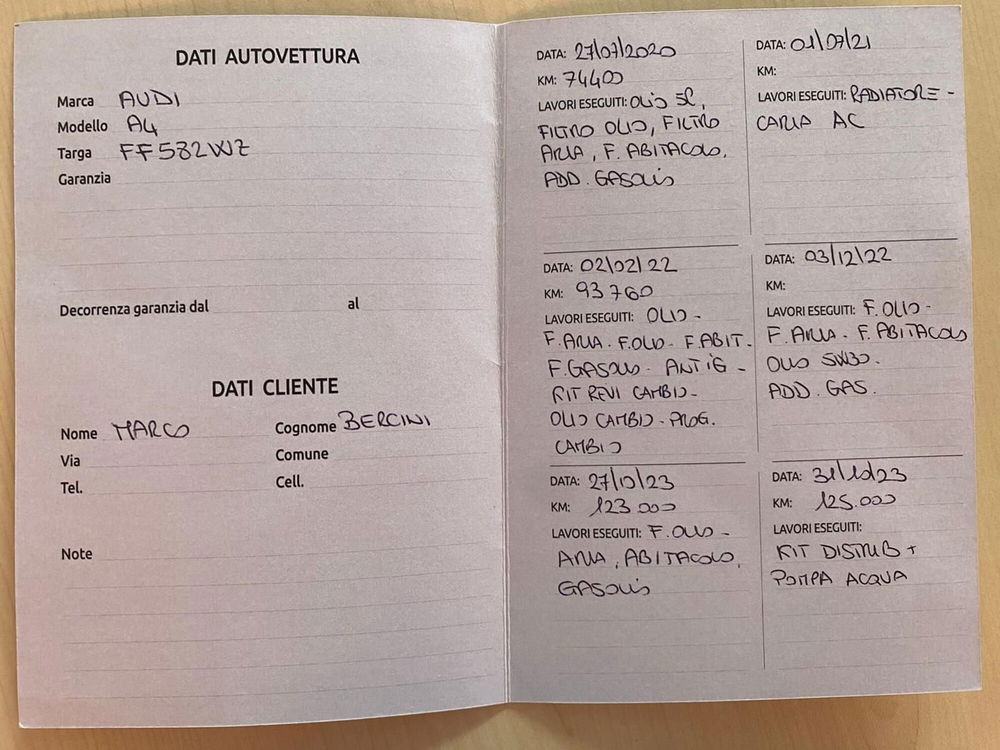 DATI AUTOVETTURA
Marca AUDI
Modello A4
Targa FF582WZ
Garanzia
Decorrenza garanzia dal al
DATI CLIENTE
Nome MARCO Cognome BERCINI
Via Comune
Tel. Cell.
Note
DATA: 27/07/2020
KM: 74400
LAVORI ESEGUITI: OLIO 5L,
FILTRO OLIO, FILTRO
ARIA, F. ABITACOLO,
ADD. GASOLIO
DATA: 01/07/21
KM:
LAVORI ESEGUITI: RADIATORE -
CARICA AC
DATA: 02/02/22
KM: 93760
LAVORI ESEGUITI: OLIO -
F. ARIA - F. OLIO - F. ABIT -
F. GASOLIO - ANTIG -
KIT REVI CAMBIO -
OLIO CAMBIO - PROG.
CAMBIO
DATA: 03/12/22
KM:
LAVORI ESEGUITI: F. OLIO -
F. ARIA - F. ABITACOLO
OLIO 5W30 -
ADD. GAS.
DATA: 27/10/23
KM: 123.000
LAVORI ESEGUITI: F. OLIO -
ARIA, ABITACOLO,
GASOLIO
DATA: 31/10/23
KM: 125.000
LAVORI ESEGUITI:
KIT DISTRIB +
POMPA ACQUA